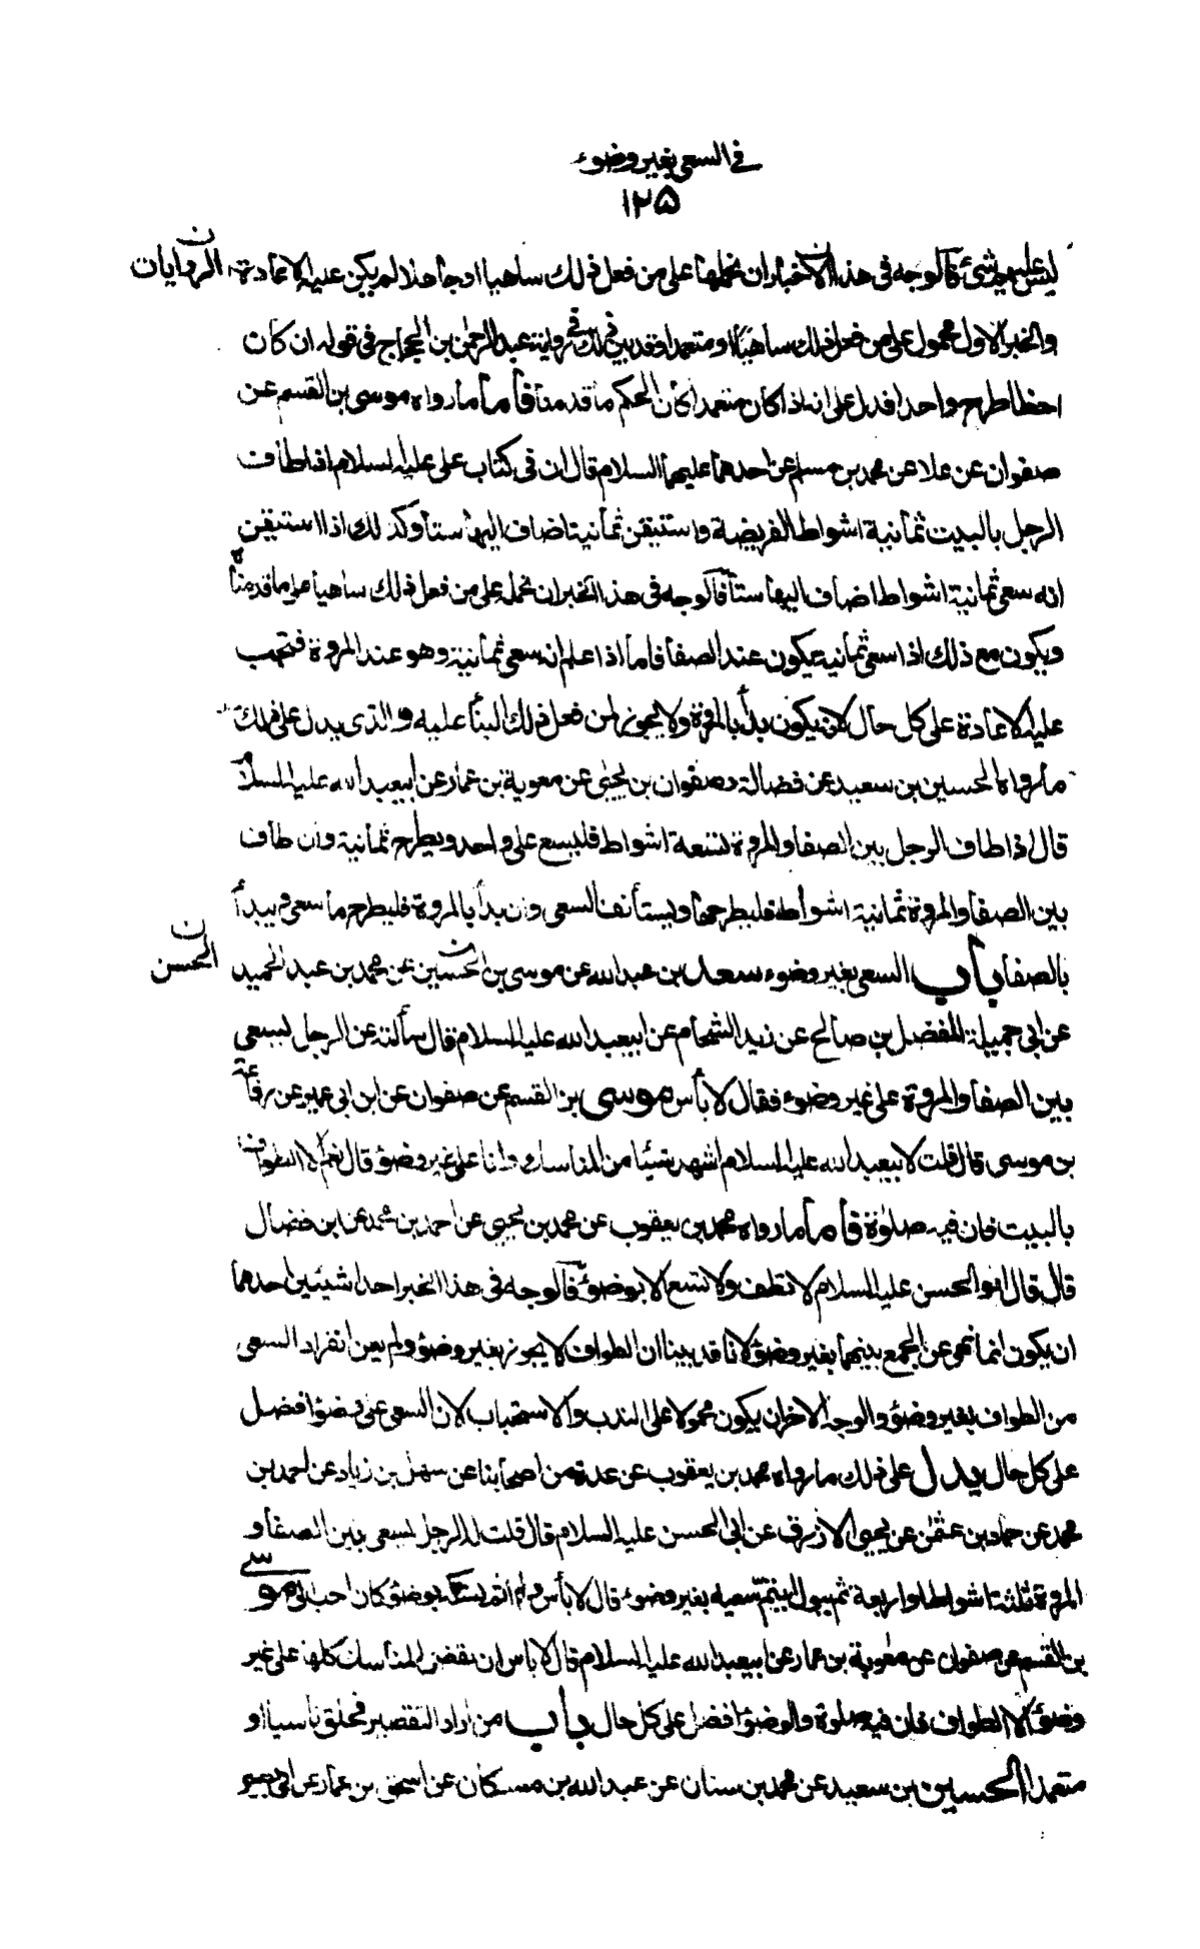 في السعى بغير وضوء
١٢٥
ليس عليهم شئ فالوجه فى هذه الاخبار ان نحملها على من فعل ذلك ساهيا او جاهلا لم يكن عليه الاعادة الروايات ن
والخبر الاول محمول على من فعل ذلك ساهيا او متعمدا وقد بين ذلك فى رواية عبد الرحمن بن الحجاج فى قوله ان كان
اخطأ اطرح واحدا فدل على انه اذا كان متعمدا كان الحكم ما قدمناه فأما ما رواه موسى بن القسم عن
صفوان عن علا عن محمد بن مسلم عن احدهما عليهما السلام قال ان فى كتاب على عليه السلام اذا طاف
الرجل بالبيت ثمانية اشواط الفريضة واستيقن ثمانية اضاف اليها ستا وكذلك اذا استيقن
انه سعى ثمانية اشواط اضاف اليها ستا فالوجه فى هذا الخبر ان نحمله على من فعل ذلك ساهيا على ما قدمناه
ويكون مع ذلك اذا سعى ثمانية يكون عند الصفا فاما اذا علم انه سعى ثمانية وهو عند المروة فتجب
عليه الاعادة على كل حال لانه يكون بدأ بالمروة ولا يجوز لمن فعل ذلك البنأ عليه والذى يدل على ذلك
ما رواه الحسين بن سعيد عن فضالة وصفوان بن يحيى عن معوية بن عمار عن ابيعبد الله عليه السلام
قال اذا طاف الرجل بين الصفا والمروة تسعة اشواط فليسع على واحد ويطرح ثمانية وان طاف
بين الصفا والمروة ثمانية اشواط فليطرحها وليستأنف السعى وان بدأ بالمروة فليطرح ما سعى ويبدأ
بالصفا باب السعى بغير وضوء سعد بن عبد الله عن موسى بن الحسين عن محمد بن عبد الحميد الحسن ن
عن ابى جميلة المفضل بن صالح عن زيد الشحام عن ابيعبد الله عليه السلام قال سألته عن الرجل يسعى
بين الصفا والمروة على غير وضوء فقال لا بأس موسى بن القسم عن صفوان عن ابن ابى عمير عن رفاعة
بن موسى قال قلت لابيعبد الله عليه السلام اشهد شيئا من المناسك وانا على غير وضوء قال نعم الا الطواف
بالبيت فان فيه صلوة فأما ما رواه محمد بن يعقوب عن محمد بن يحيى عن احمد بن محمد عن ابن فضال
قال قال ابو الحسن عليه السلام لا تطف ولا تسع الا بوضوء فالوجه فى هذا الخبر احد شيئين احدهما
ان يكون انما نهى عن الجمع بينهما بغير وضوء لانا قد بينا ان الطواف لا يجوز بغير وضوء ولم يعن انفراد السعى
من الطواف بغير وضوء والوجه الاخر ان يكون محمولا على الندب والاستحباب لان السعى على وضوء افضل
على كل حال يدل على ذلك ما رواه محمد بن يعقوب عن عدة من اصحابنا عن سهل بن زياد عن احمد بن
محمد عن حماد بن عثمن عن يحيى الازرق عن ابى الحسن عليه السلام قال قلت له الرجل يسعى بين الصفا و
المروة ثلثة اشواط او اربعة ثم يبول ايتم سعيه بغير وضوء قال لا بأس ولو اتم نسكه بوضوء كان احب الى موسى
بن القسم عن صفوان عن معوية بن عمار عن ابيعبد الله عليه السلام قال لا بأس ان تقضى المناسك كلها على غير
وضوء الا الطواف فان فيه صلوة والوضوء افضل على كل حال باب من اراد التقصير فحلق ناسيا او
متعمدا الحسين بن سعيد عن محمد بن سنان عن عبد الله بن مسكان عن اسحق بن عمار عن ابى بصير